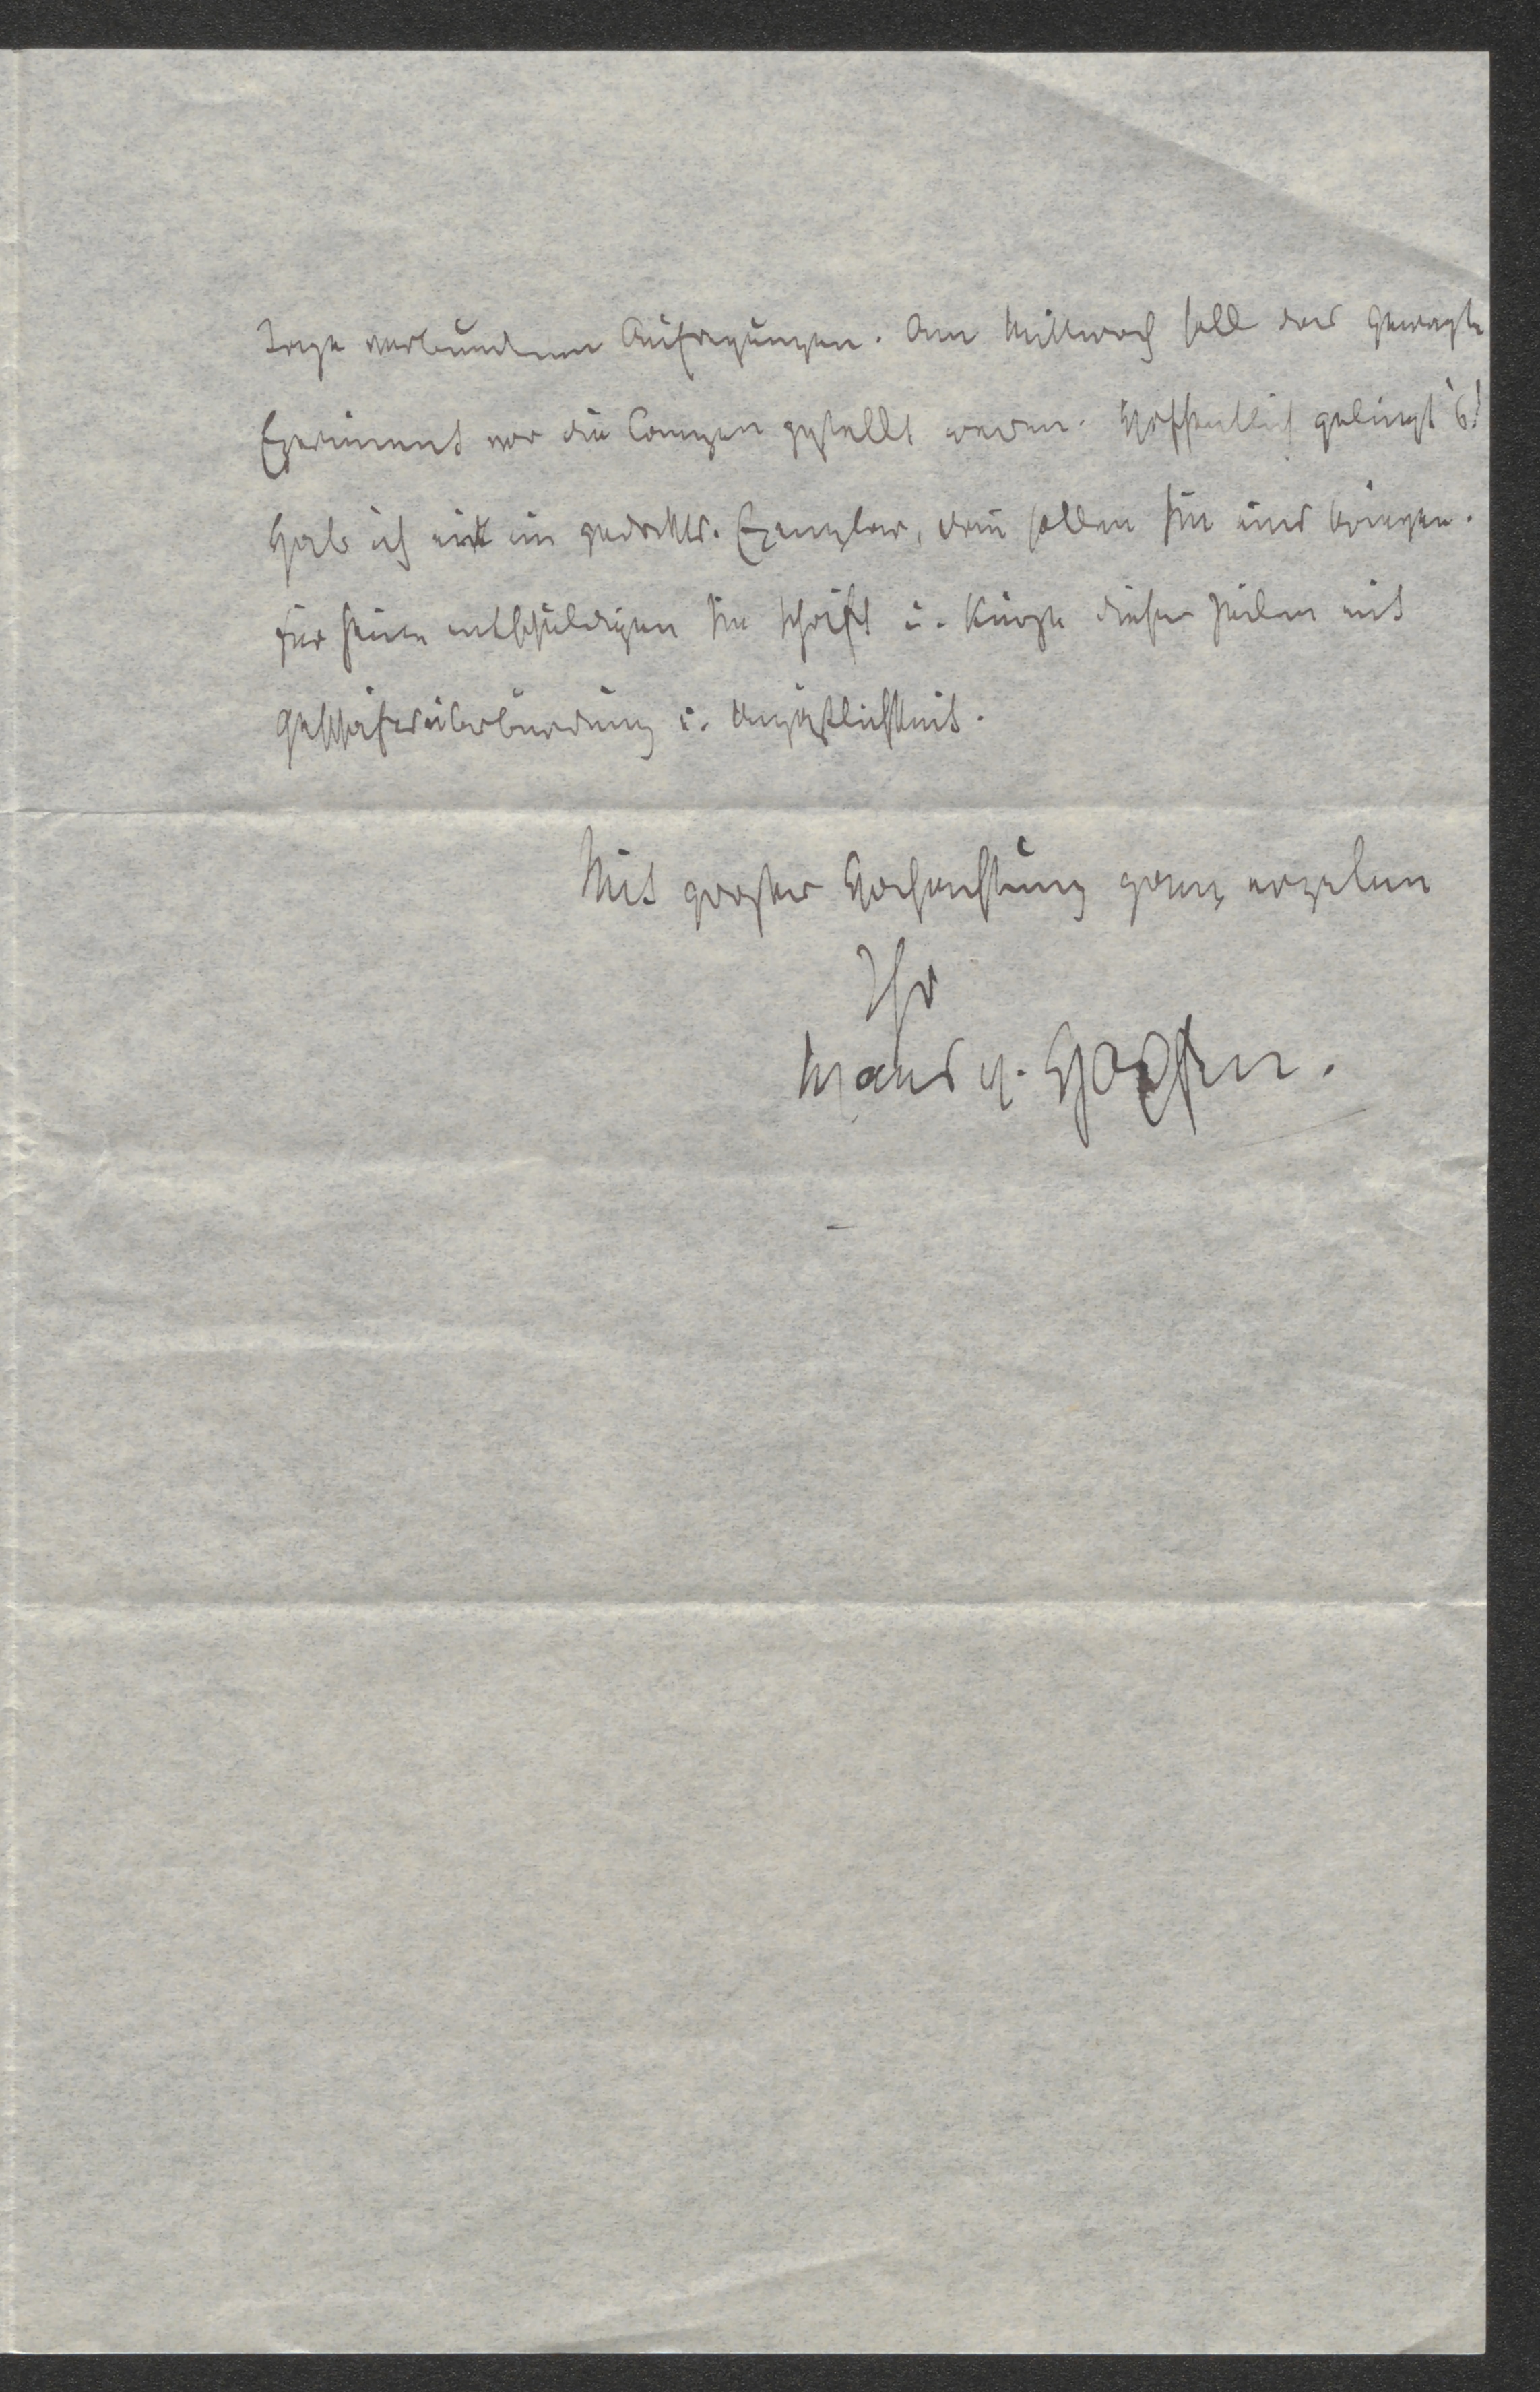 Tage verbundenen Aufregungen. Am Mittwoch soll das gewagte
Experiment vor die Lampen gestellt werden. Hoffentlich gelingt's!
Hab ich erst ein gedrucktes Exemplar, dann sollen Sie eins kriegen.
Für heute entschuldigen Sie Schrift u. Kürze dieser Zeilen mit
Geschäftsüberbürdung u.
Mit großer Hochachtung ganz ergeben
Ihr
Hans v. Hopfen.